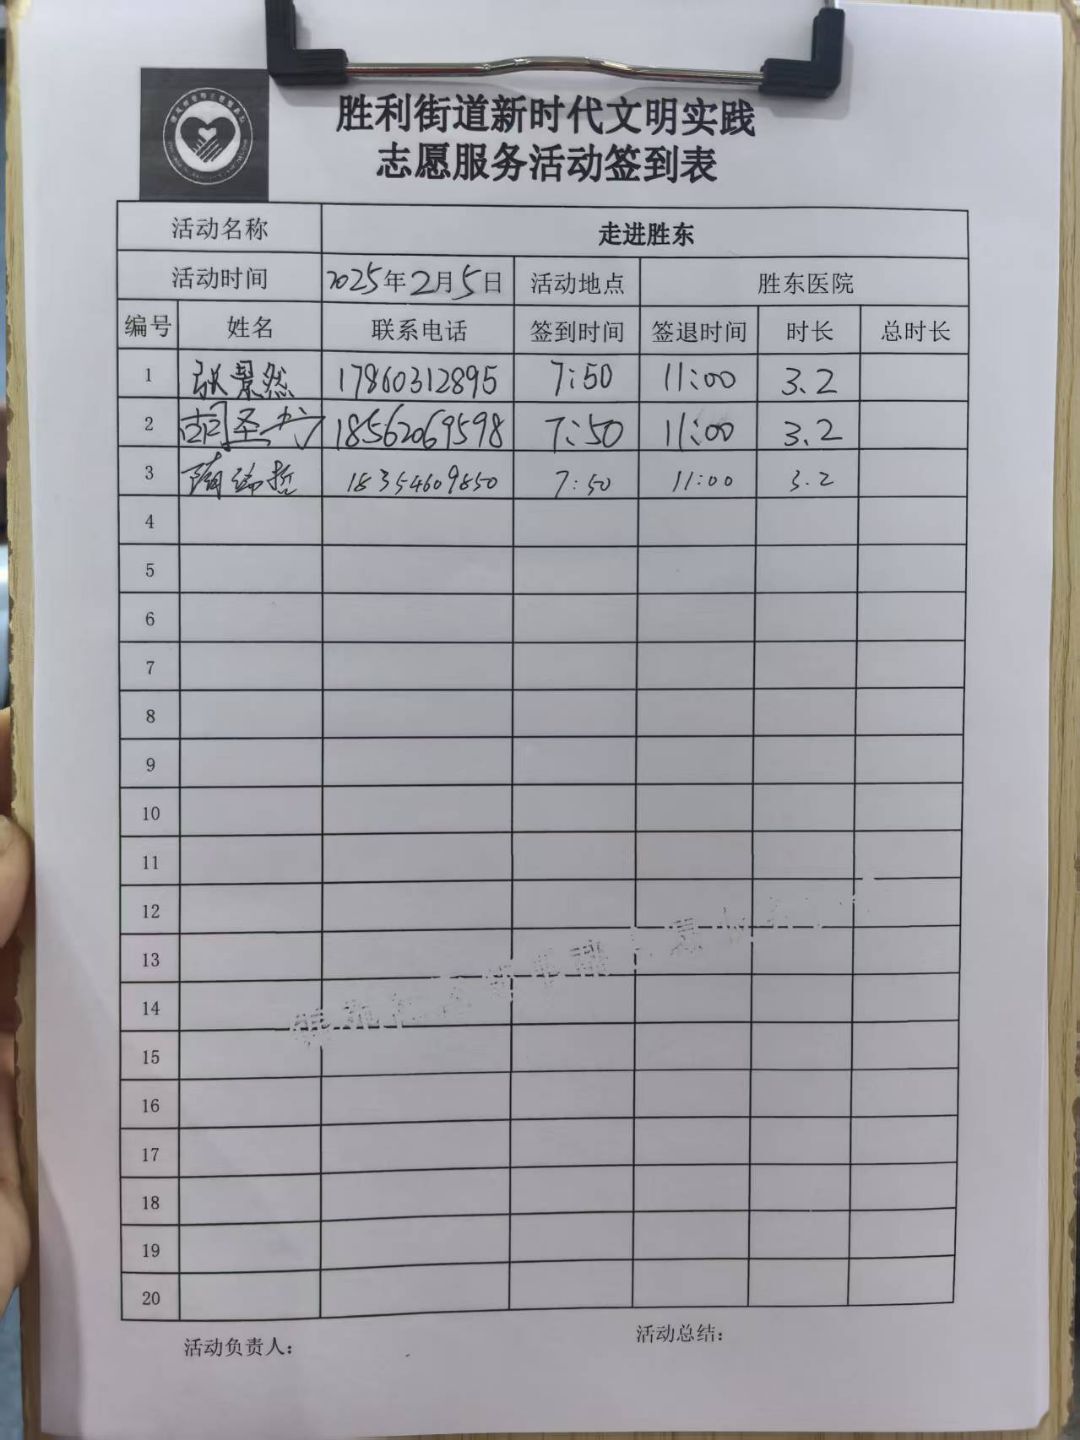 胜利街道新时代文明实践
志愿服务活动签到表
活动名称 走进胜东
活动时间 2025年2月5日 活动地点 胜东医院
编号 姓名 联系电话 签到时间 签退时间 时长 总时长
1 张景然 17860312895 7:50 11:00 3.2
2 胡圣 18562069598 7:50 11:00 3.2
3 陶瑞哲 18354609850 7:50 11:00 3.2
4
5
6
7
8
9
10
11
12
13
14
15
16
17
18
19
20
活动负责人： 活动总结：